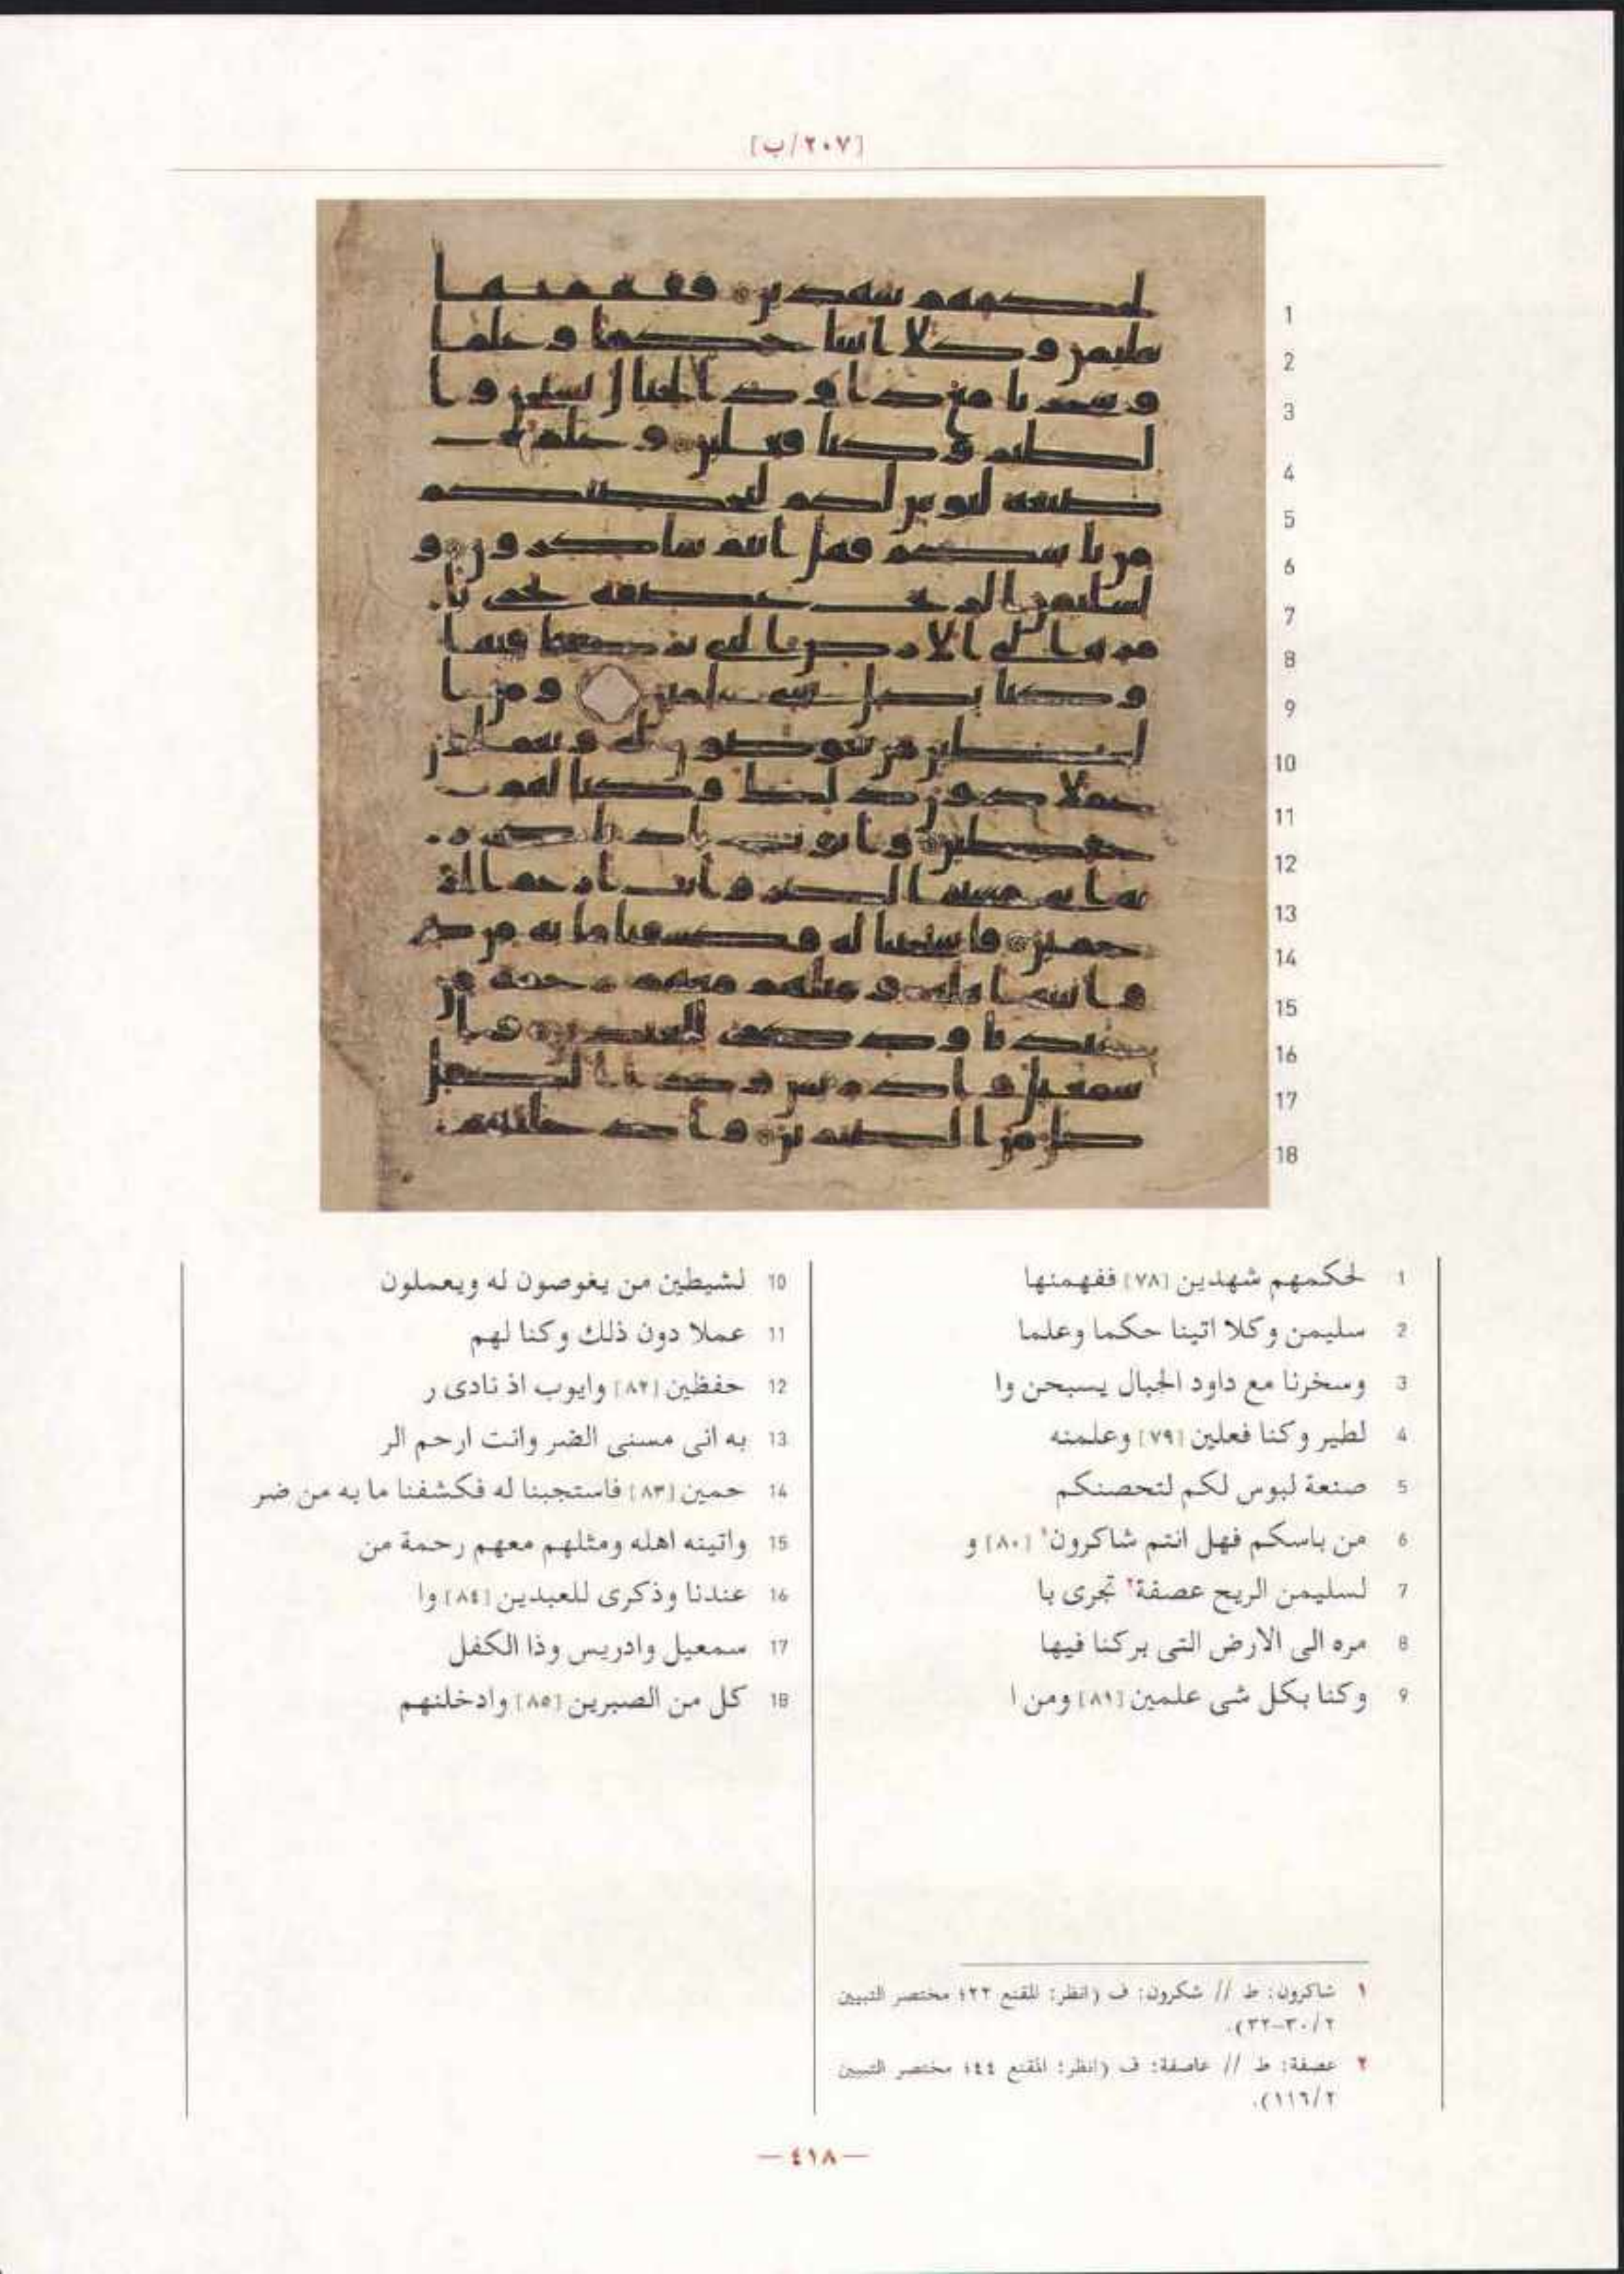 [٢٠٧/ب]
1 لحكمهم شهدين [٧٨] ففهمنها
2 سليمن وكلا اتينا حكما وعلما
3 وسخرنا مع داود الجبال يسبحن وا
4 لطير وكنا فعلين [٧٩] وعلمنه
5 صنعة لبوس لكم لتحصنكم
6 من باسكم فهل انتم شاكرون١ [٨٠] و
7 لسليمن الريح عصفة٢ تجرى با
8 مره الى الارض التى بركنا فيها
9 وكنا بكل شى علمين [٨١] ومن ا
10 لشيطين من يغوصون له ويعملون
11 عملا دون ذلك وكنا لهم
12 حفظين [٨٢] وايوب اذ نادى ر
13 به انى مسنى الضر وانت ارحم الر
14 حمين [٨٣] فاستجبنا له فكشفنا ما به من ضر
15 واتينه اهله ومثلهم معهم رحمة من
16 عندنا وذكرى للعبدين [٨٤] وا
17 سمعيل وادريس وذا الكفل
18 كل من الصبرين [٨٥] وادخلنهم
١ شاكرون: ط // شكرون: ف (انظر: المقنع ٢٢؛ مختصر التبيين
٣٠/٢-٣٢).
٢ عصفة: ط // عاصفة: ف (انظر: المقنع ٤٤؛ مختصر التبيين
١١٦/٢).
— ٤١٨ —